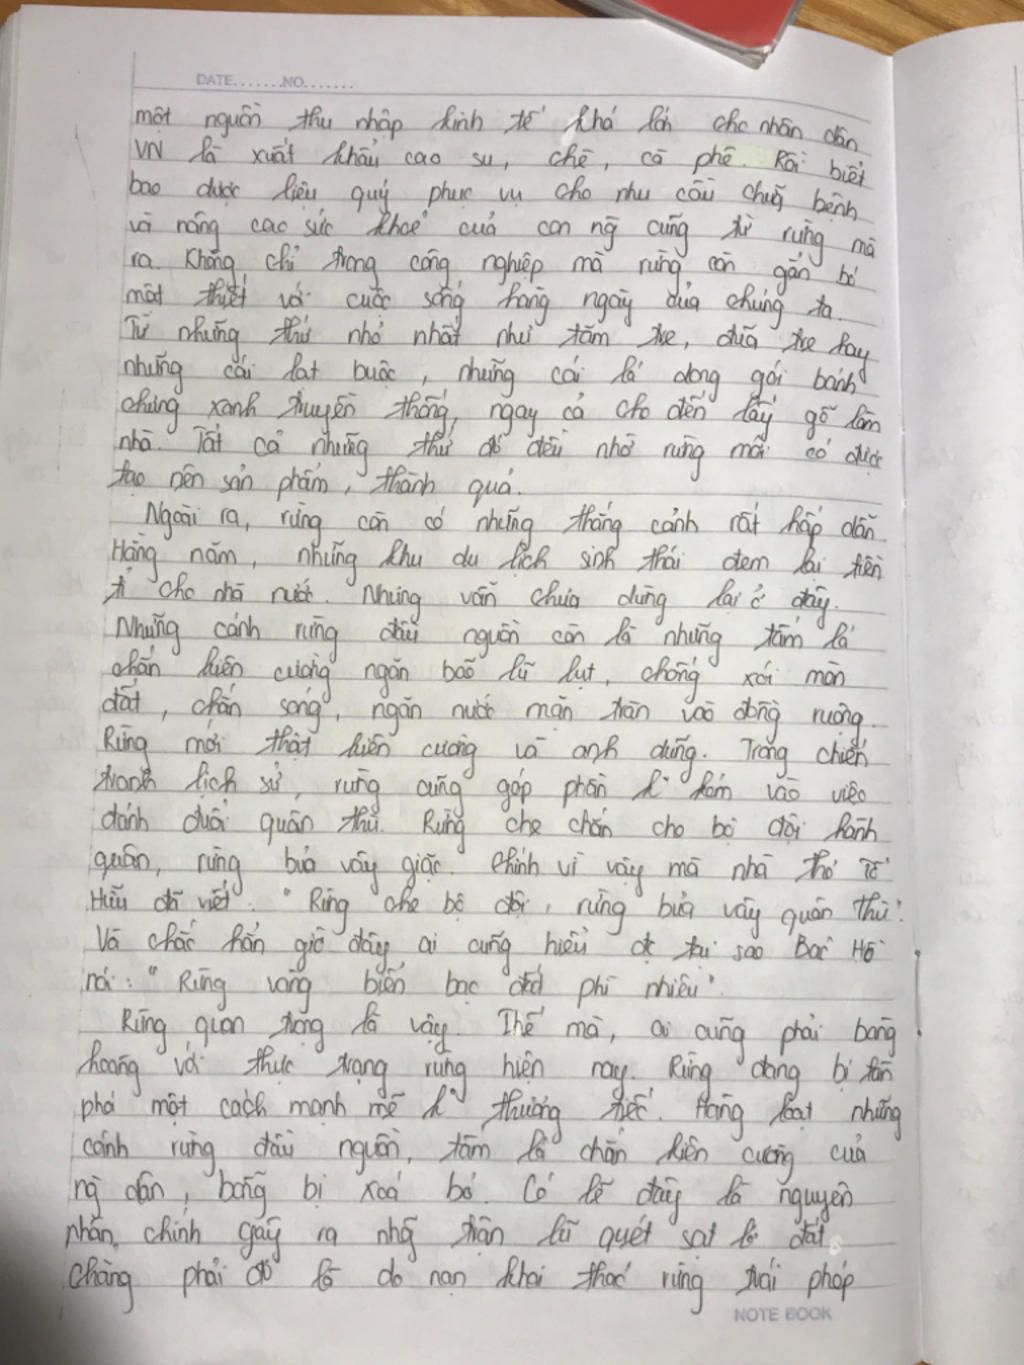 DATE.......NO.......
một nguồn thu nhập kinh tế khá lớn cho nhân dân
VN là xuất khẩu cao su, chè, cà phê. Rồi biết
bao dược liệu quý phục vụ cho nhu cầu chữa bệnh
và nâng cao sức khoẻ của con ng cũng từ rừng mà
ra. Không chỉ trong công nghiệp mà rừng còn gắn bó
mật thiết với cuộc sống hàng ngày của chúng ta.
Từ những thứ nhỏ nhất như tăm tre, đũa tre hay
những cái lạt buộc, những cái lá dong gói bánh
chưng xanh truyền thống, ngay cả cho đến lấy gỗ làm
nhà. Tất cả những thứ đó đều nhờ rừng mới có được
tạo nên sản phẩm, thành quả.
Ngoài ra, rừng còn có những thắng cảnh rất hấp dẫn.
Hàng năm, những khu du lịch sinh thái đem lại tiền
tỉ cho nhà nước. Nhưng vẫn chưa dừng lại ở đây.
Những cánh rừng đầu nguồn còn là những tấm lá
chắn kiên cường ngăn bão lũ lụt, chống xói mòn
đất, chắn sóng, ngăn nước mặn tràn vào đồng ruộng.
Rừng mới thật kiên cường và anh dũng. Trong chiến
tranh lịch sử, rừng cũng góp phần k kém vào việc
đánh đuổi quân thù. Rừng che chắn cho bộ đội hành
quân, rừng bủa vây giặc. Chính vì vậy mà nhà thơ Tố
Hữu đã viết: "Rừng che bộ đội, rừng bủa vây quân thù".
Và chắc hẳn giờ đây ai cũng hiểu đc tại sao Bác Hồ
nói: "Rừng vàng biển bạc đất phì nhiêu".
Rừng quan trọng là vậy. Thế mà, ai cũng phải bàng
hoàng với thực trạng rừng hiện nay. Rừng đang bị tàn
phá một cách mạnh mẽ k thương tiếc. Hàng loạt những
cánh rừng đầu nguồn, tấm lá chắn kiên cường của
ng dân, bỗng bị xoá bỏ. Có lẽ đây là nguyên
nhân chính gây ra nhg trận lũ quét sạt lở đất.
Chẳng phải đó là do nạn khai thác rừng trái phép
NOTE BOOK